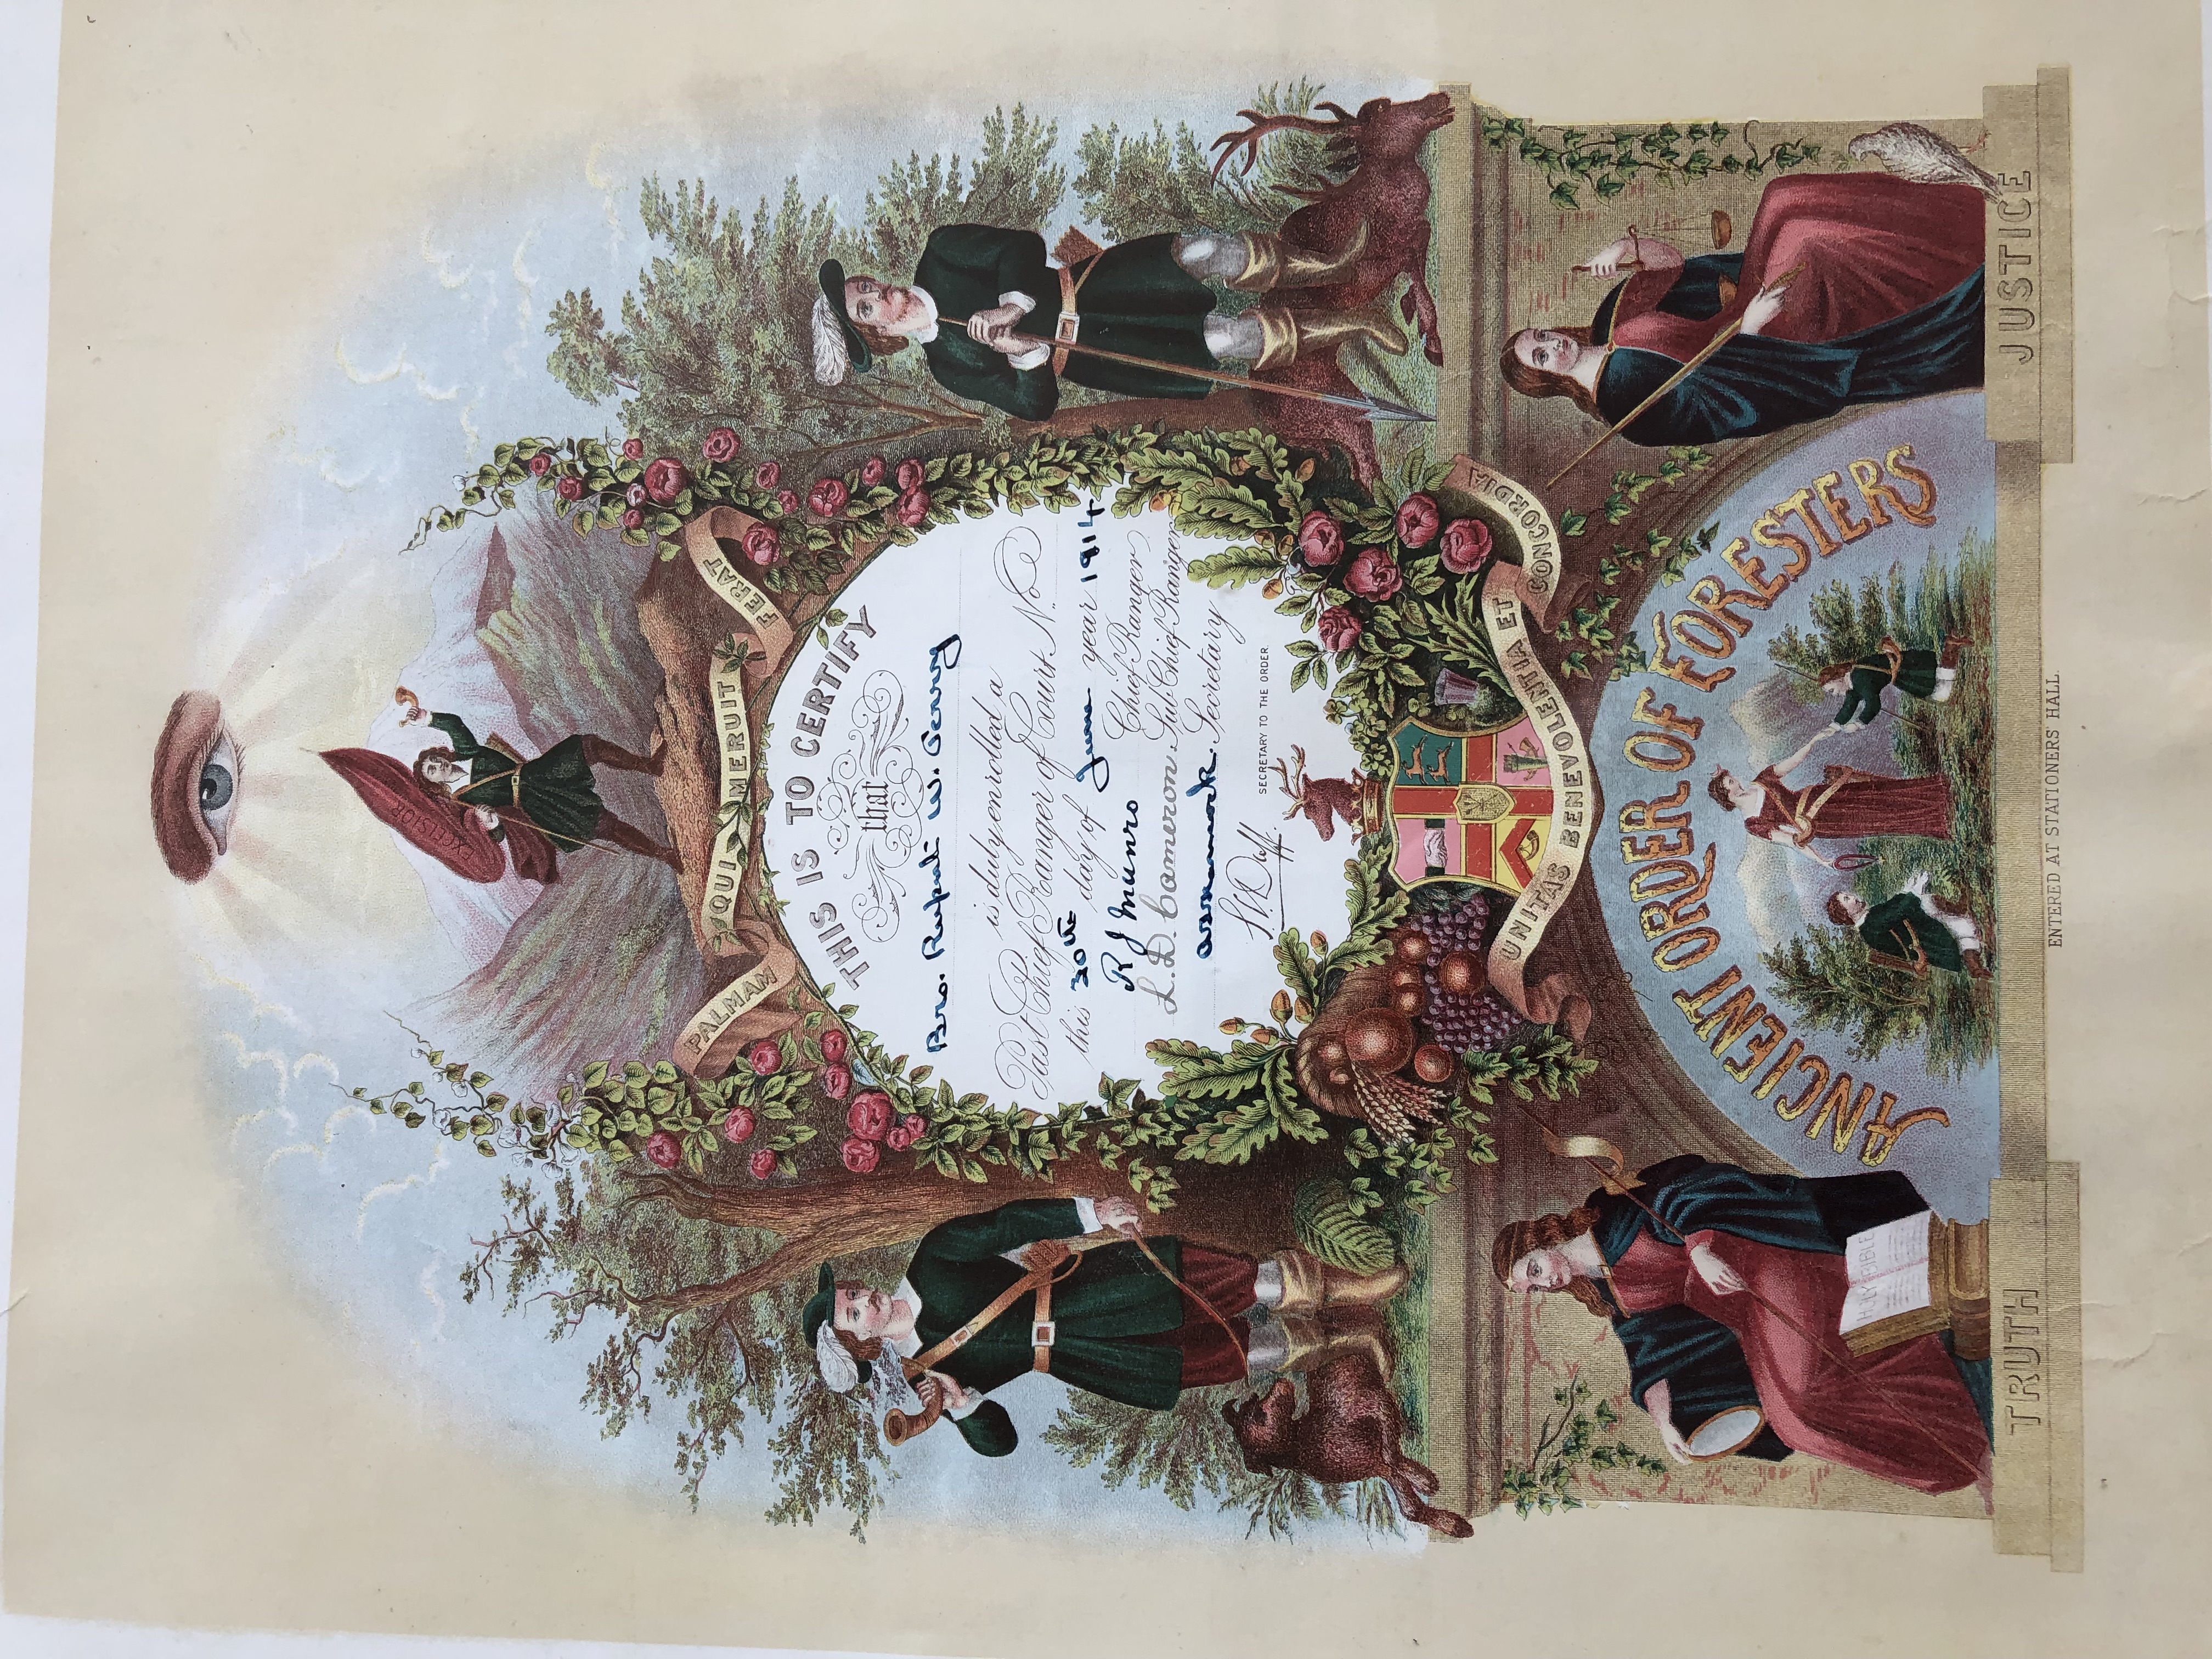 EXCELSIOR
PALMAM QUI MERUIT FERAT
THIS IS TO CERTIFY
that
Bro. Rupert W. Perry
is duly enrolled a
Past Chief Ranger of Court No.
this 30th day of June year 1914
R J Munro Chief Ranger
L. D. Cameron Sub-Chief Ranger
Secretary
Duff. SECRETARY TO THE ORDER.
UNITAS BENEVOLENTIA ET CONCORDIA
ANCIENT ORDER OF FORESTERS
HOLY BIBLE
TRUTH
JUSTICE
ENTERED AT STATIONERS' HALL.